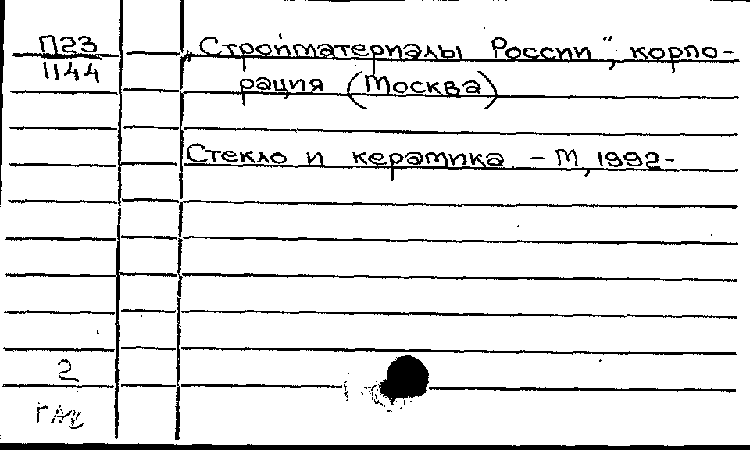 П23 „Стройматериалы России“, корпо-
1144 рация (Москва)
Стекло и керамика. - М, 1992-
2